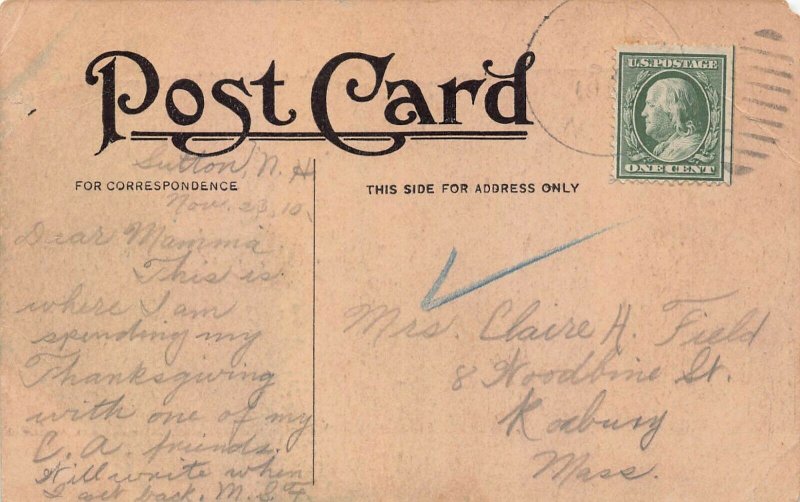 Post Card
U.S. POSTAGE
ONE CENT
Sutton, N. H.
FOR CORRESPONDENCE
THIS SIDE FOR ADDRESS ONLY
Nov. 23, 10.
Dear Mamma.
This is
where I am
spending my
Thanksgiving
with one of my
C. A. friends.
Will write when
I get back. M. L. F.
Mrs. Claire H. Field
8 Woodbine St.
Roxbury
Mass.